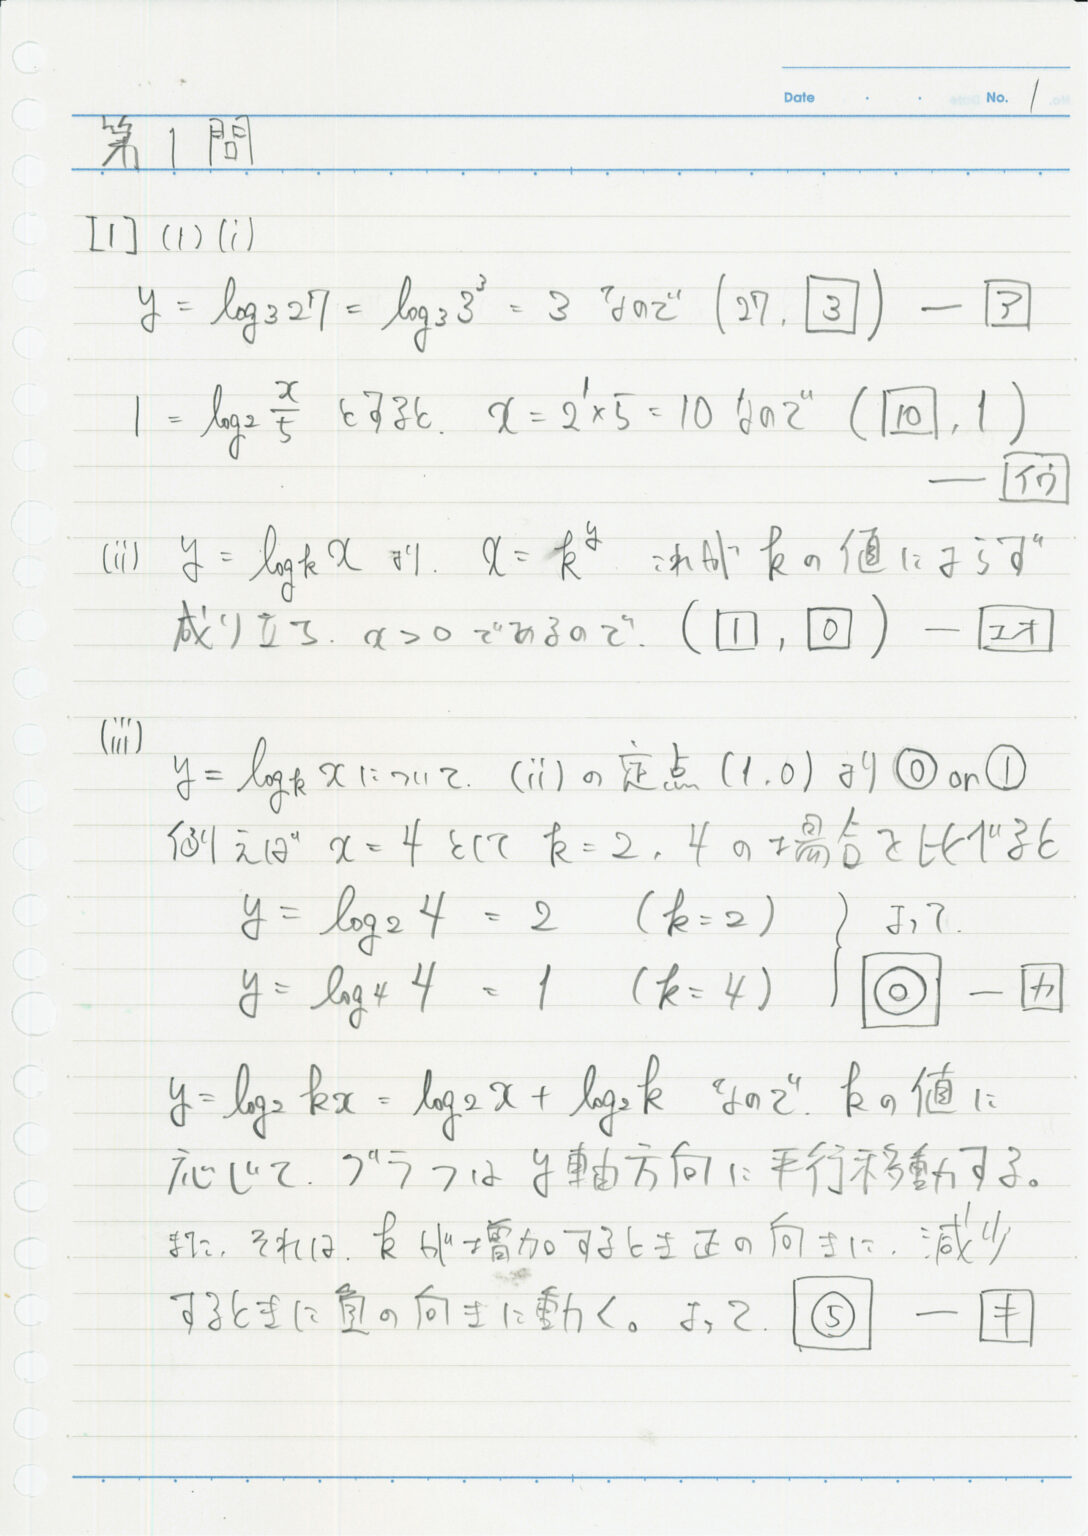 Date ・ ・ No. 1
第1問
[1] (1) (i)
y = log₃27 = log₃3³ = 3 なので (27, 3) ― ア
1 = log₂ x/5 とすると. x = 2¹×5 = 10 なので (10, 1)
― イウ
(ii) y = logₖx より. x = k^y これが k の値によらず
成り立ち. x>0 であるので. (1, 0) ― エオ
(iii)
y = logₖx について. (ii) の定点 (1,0) より ⓪ or ①
例えば x = 4 として k = 2, 4 の場合を比べると
y = log₂4 = 2 (k=2) } よって.
y = log₄4 = 1 (k=4) ⓪ ― カ
y = log₂kx = log₂x + log₂k なので. k の値に
応じて. グラフは y軸方向に平行移動する。
また, それは, k が増加するとき正の向きに, 減少
するときに負の向きに動く。よって. ⑤ ― キ